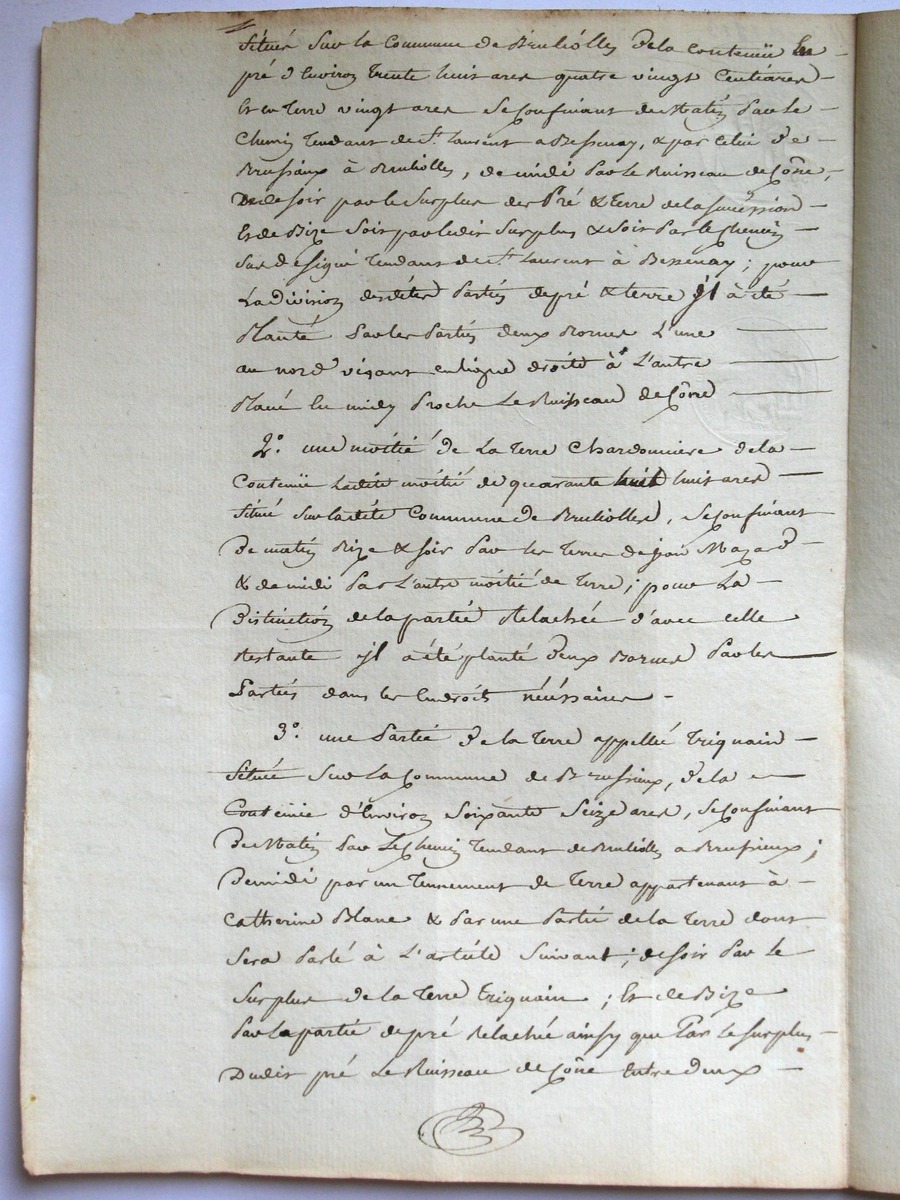 située sur la Commune de Brulioles de la contenüe en
pré d'environ trente huit ares quatre vingt centiares
et en terre vingt ares se confinant de matin par le
chemin tendant de St. Laurent a Bessenay, & par celui de
Brussieux à Brulioles, de midi par le Ruisseau de Cône,
de soir par le surplus des pré & terre de la succession
et de Bize soit par ledit surplus & soit par le chemin
sus désigné tendant de St. Laurent à Bessenay ; pour
la division desdites parties de pré & terre il à été
planté par les parties deux Bornes l'une
au nord visant en ligne droite à l'autre
placé en midy proche le Ruisseau de Côné
2°. une moitié de la terre Chardonniere de la
contenüe ladite moitié de quarante huit ares
située sur la dite Commune de Brulioles, se confinant
de matin Bize & soir par les terres de jean Mazard
& de midi par l'autre moitié de terre ; pour la
distinction de la partie relachée d'avec celle
restante il a été planté deux Bornes par les
parties dans les endroits nécéssaires
3°. une partie de la terre appellée Triquain
située sur la Commune de Brussieux, de la
contenüe d'environ soixante seize ares, se confinant
de matin par le chemin tendant de Brulioles a Brussieux ;
de midi par un tennement de terre appartenant à
Catherine Blanc & par une partie de la terre dont
sera parlé à l'article suivant ; de soir par le
surplus de la terre Triquain ; et de Bize
par la partie de pré relachée ainsy que par le surplus
dudit pré le Ruisseau de Côné entre deux